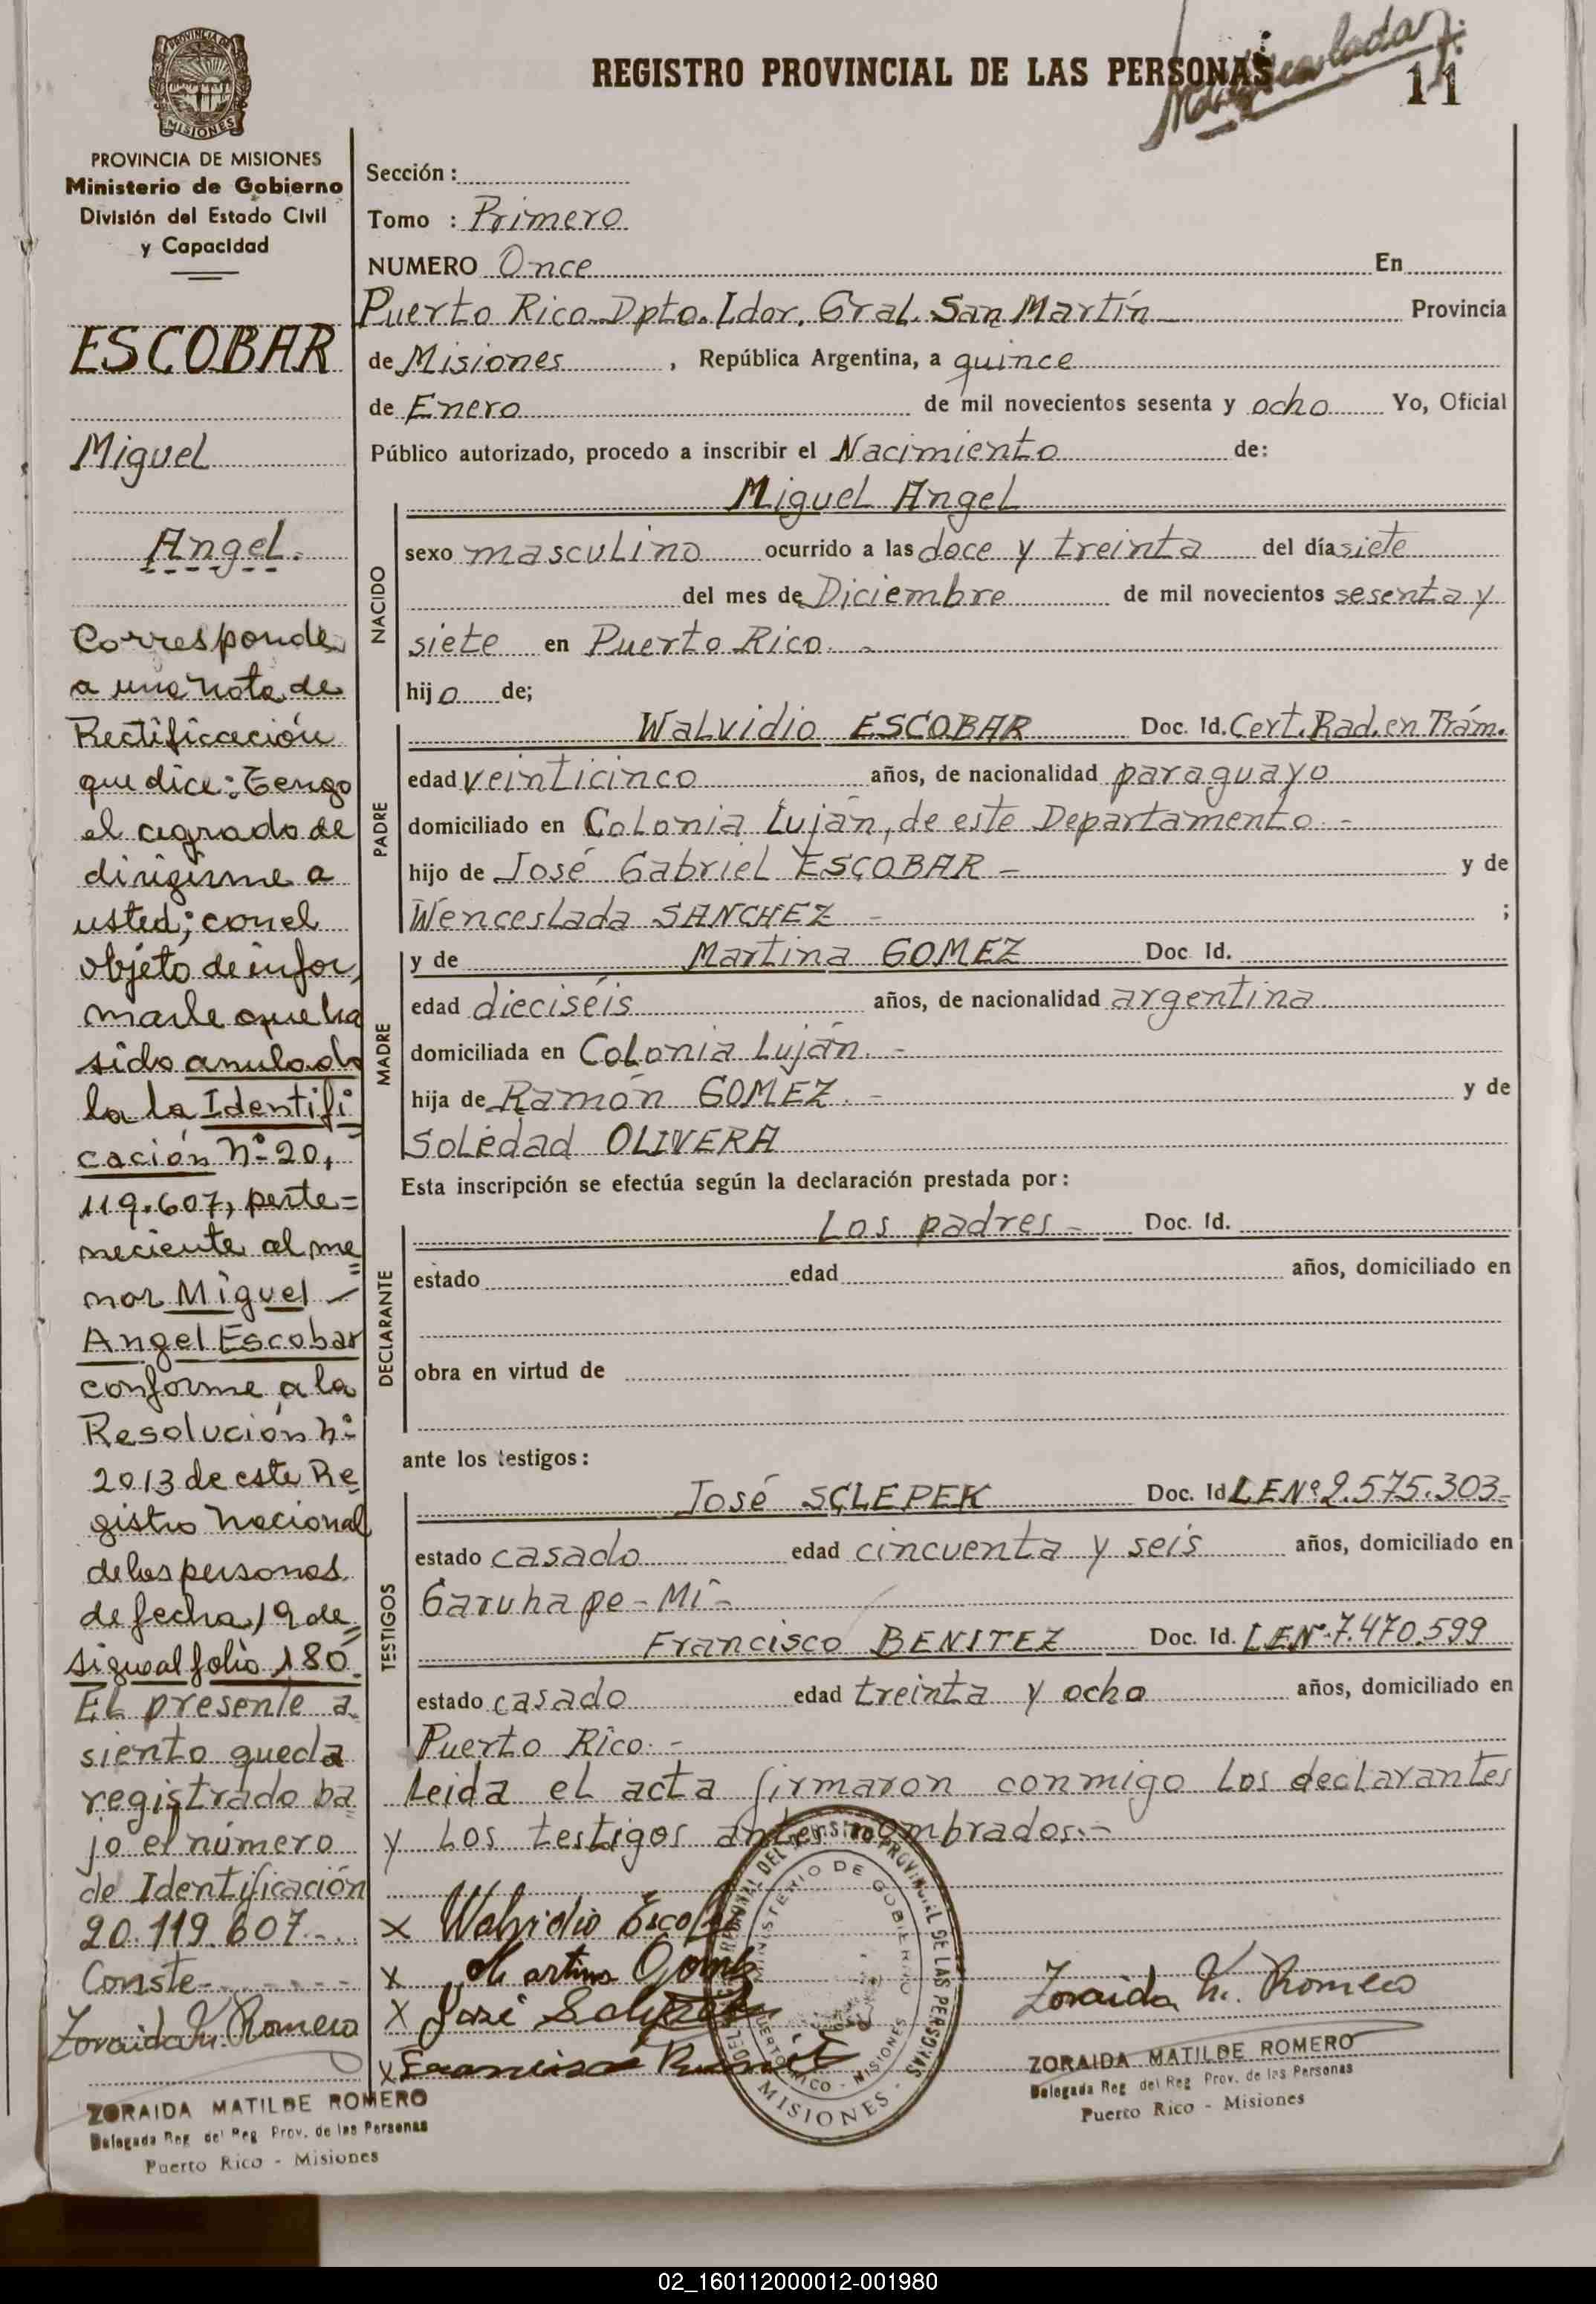 REGISTRO PROVINCIAL DE LAS PERSONAS
11
MISIONES
PROVINCIA DE MISIONES
Ministerio de Gobierno
División del Estado Civil
y Capacidad
ESCOBAR
Miguel
Angel.
Corresponde
a una nota de
Rectificación
que dice: Tengo
el agrado de
dirigirme a
usted; con el
objeto de infor
marle que ha
sido anulado
la la Identifi
cación Nº 20.
119.607, perte=
neciente al me
nor Miguel
Angel Escobar
conforme a la
Resolución Nº
2013 de este Re
gistro Nacional
de las personas
de fecha 19 de
sigue al folio 180.
El presente a
siento queda
registrado ba
jo el número
de Identificación
20.119.607...
Conste-
Zoraida M. Romero
ZORAIDA MATILDE ROMERO
Delegada Reg. del Reg. Prov. de las Personas
Puerto Rico - Misiones
Sección :
Tomo : Primero
NUMERO Once En
Puerto Rico-Dpto. Ldor. Gral. San Martín- Provincia
de Misiones , República Argentina, a quince
de Enero de mil novecientos sesenta y ocho Yo, Oficial
Público autorizado, procedo a inscribir el Nacimiento de:
NACIDO
Miguel Angel
sexo masculino ocurrido a las doce y treinta del día siete
del mes de Diciembre de mil novecientos sesenta y
siete en Puerto Rico. -
hijo de;
PADRE
Walvidio ESCOBAR Doc. Id. Cert. Rad. en Trám.
edad veinticinco años, de nacionalidad paraguayo
domiciliado en Colonia Luján, de este Departamento. -
hijo de José Gabriel ESCOBAR - y de
Wenceslada SANCHEZ - ;
MADRE
y de Martina GOMEZ Doc Id.
edad dieciséis años, de nacionalidad argentina
domiciliada en Colonia Luján. -
hija de Ramón GOMEZ. - y de
Soledad OLIVERA
Esta inscripción se efectúa según la declaración prestada por :
DECLARANTE
Los padres - Doc. Id.
estado edad años, domiciliado en
obra en virtud de
ante los testigos :
TESTIGOS
José SCLEPEK Doc. Id LENº 2.575.303-
estado casado edad cincuenta y seis años, domiciliado en
Garuhape - Mi -
Francisco BENITEZ Doc. Id. LENº 7.470.599
estado casado edad treinta y ocho años, domiciliado en
Puerto Rico. -
Leida el acta firmaron conmigo los declarantes
y los testigos antes nombrados.-
x Walvidio Escobar
x Martina Gomez
x José Sclepek
x Francisco Benitez
DEL REGISTRO PROVINCIAL DE LAS PERSONAS
MINISTERIO DE GOBIERNO
PUERTO RICO - MISIONES
MISIONES
Zoraida M. Romero
ZORAIDA MATILDE ROMERO
Delegada Reg del Reg Prov. de las Personas
Puerto Rico - Misiones
02_160112000012-001980